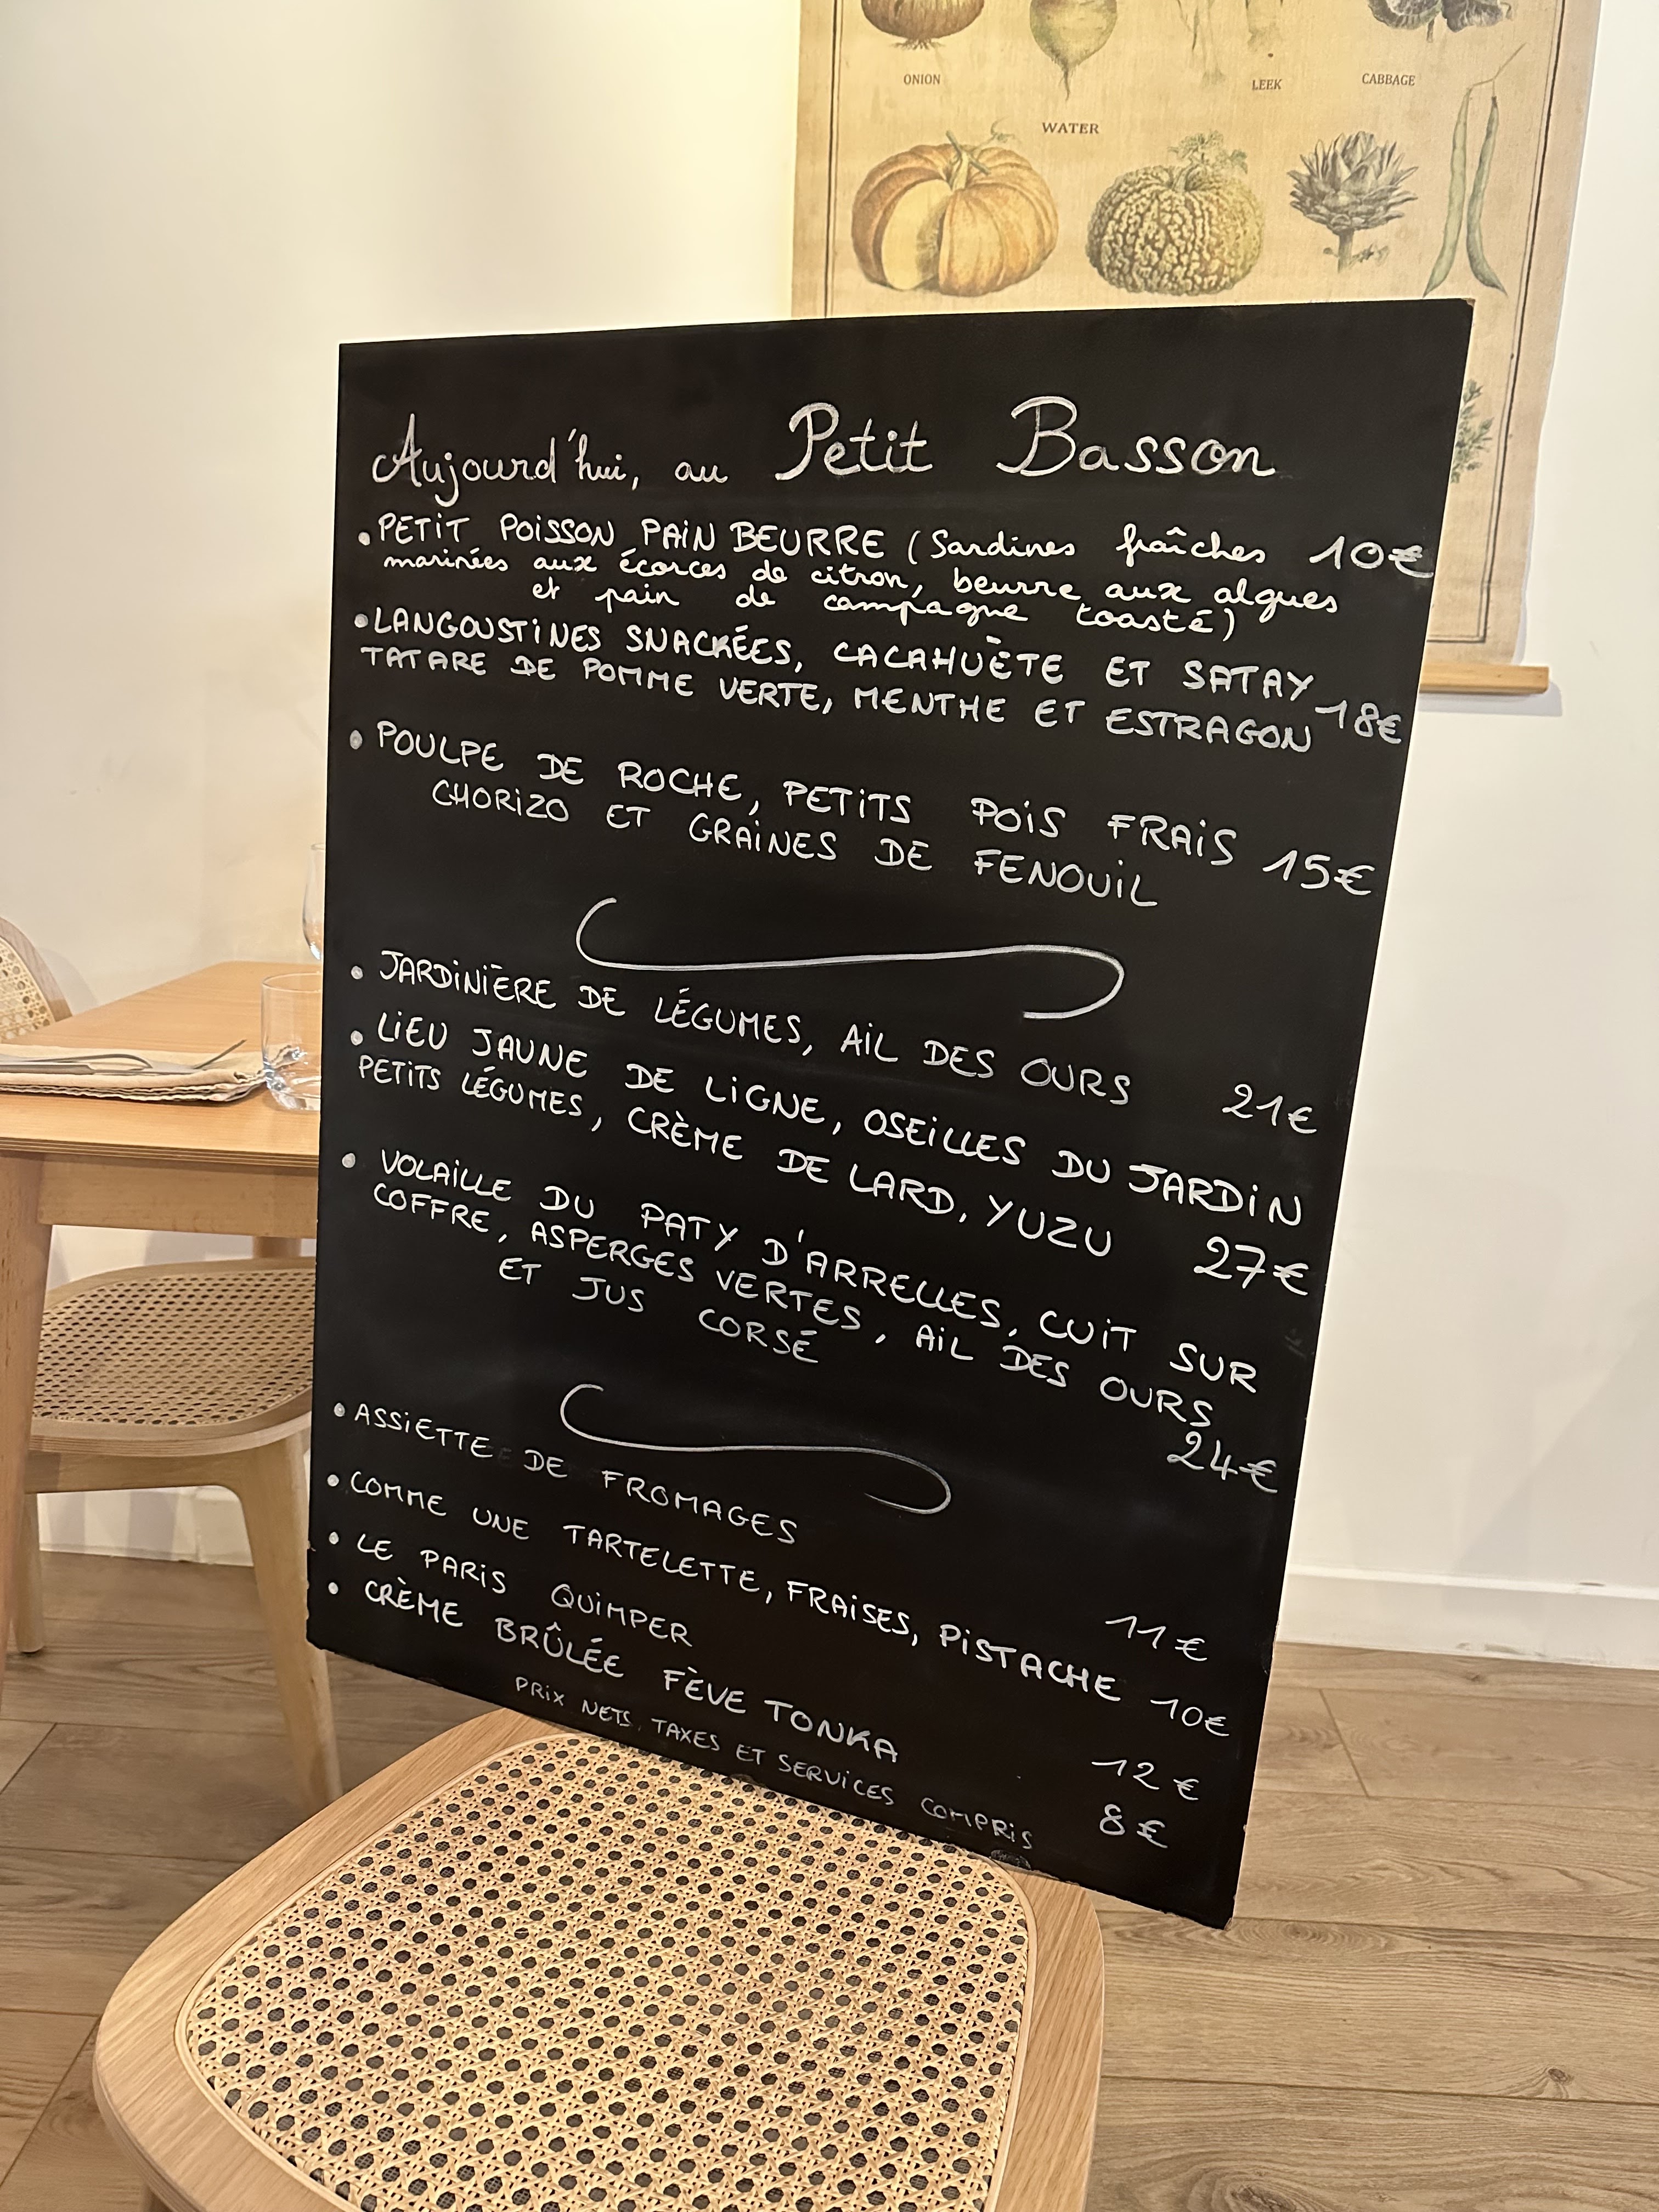 ONION
LEEK
CABBAGE
WATER
Aujourd'hui, au Petit Basson
• PETIT POISSON PAIN BEURRE (Sardines fraîches 10€
marinées aux écorces de citron, beurre aux algues
et pain de campagne toasté)
• LANGOUSTINES SNACKÉES, CACAHUÈTE ET SATAY
TATARE DE POMME VERTE, MENTHE ET ESTRAGON 18€
• POULPE DE ROCHE, PETITS POIS FRAIS
CHORIZO ET GRAINES DE FENOUIL 15€
• JARDINIÈRE DE LÉGUMES, AIL DES OURS 21€
• LIEU JAUNE DE LIGNE, OSEILLES DU JARDIN
PETITS LÉGUMES, CRÈME DE LARD, YUZU 27€
• VOLAILLE DU PATY D'ARRELLES, CUIT SUR
COFFRE, ASPERGES VERTES, AIL DES OURS
ET JUS CORSÉ 24€
• ASSIETTE DE FROMAGES 11€
• COMME UNE TARTELETTE, FRAISES, PISTACHE 10€
• LE PARIS QUIMPER 12€
• CRÈME BRÛLÉE FÈVE TONKA 8€
PRIX NETS, TAXES ET SERVICES COMPRIS